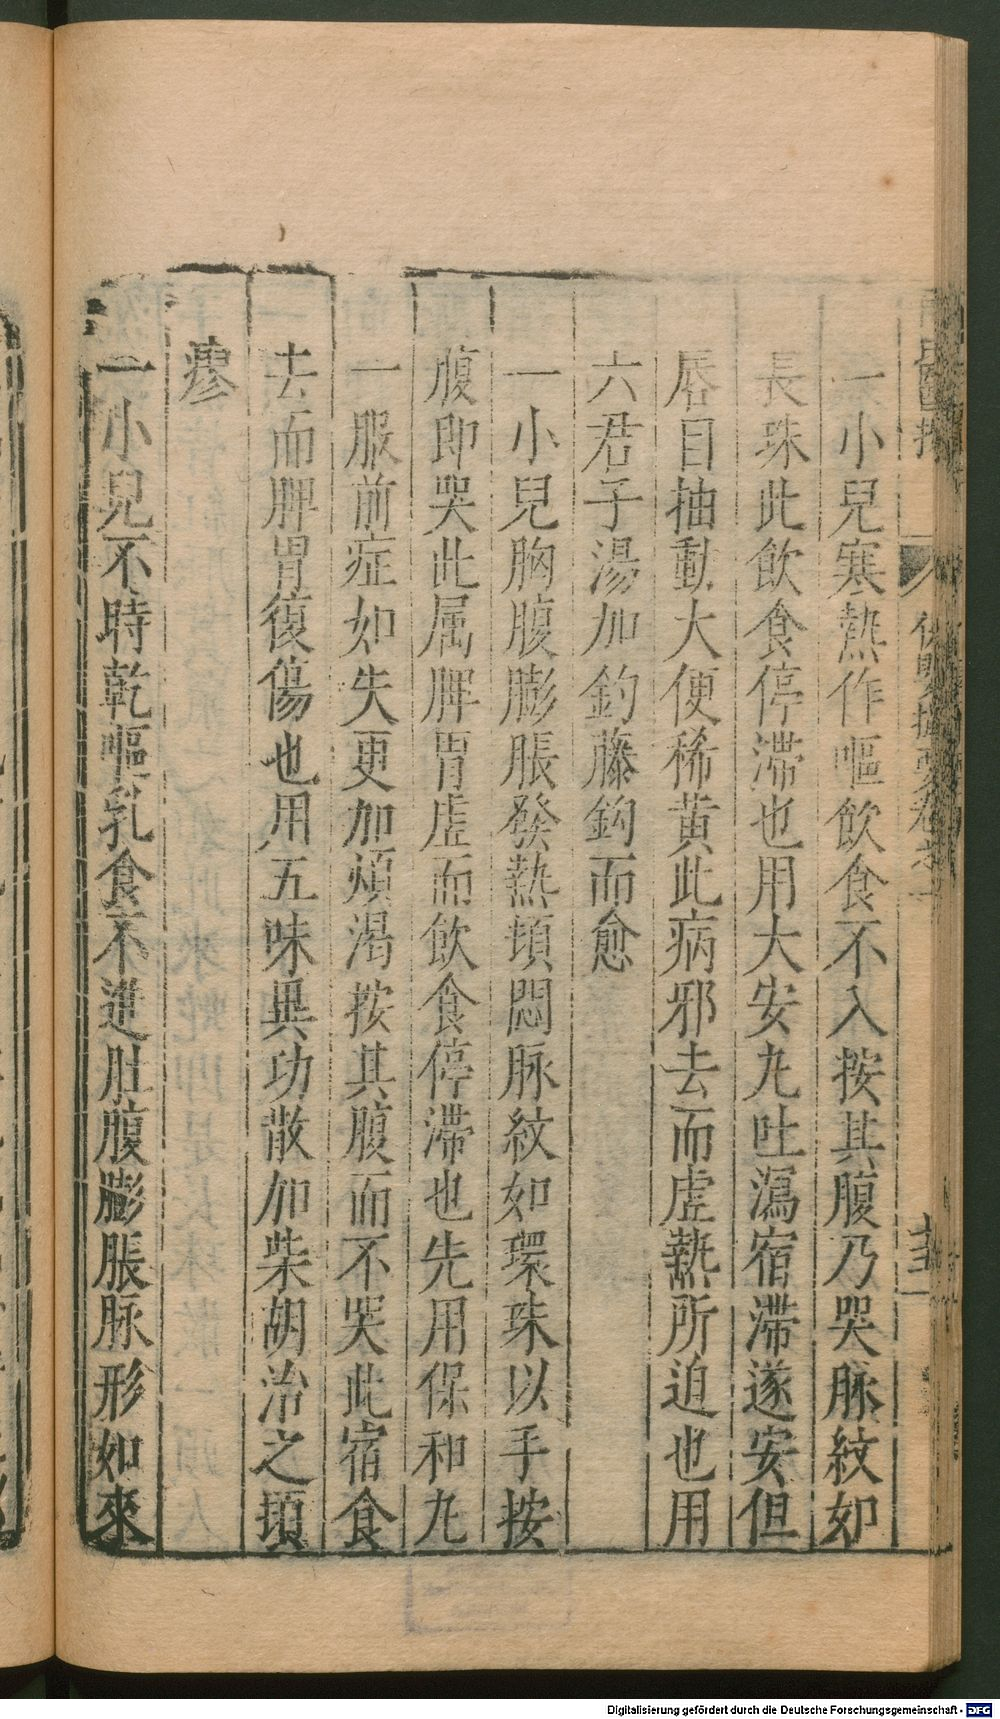 一小兒寒熱作嘔飲食不入按其腹乃哭脉紋如
長珠此飲食停滯也用大安九吐瀉宿滯遂安但
唇目抽動大便稀黄此病邪去而虛熱所迫也用
六君子湯加釣藤鈎而愈
一小兒胸腹膨脹發熱頓悶脉紋如環珠以手按
腹即哭此属脾胃虛而飲食停滯也先用保和九
一服前症如失更加煩渴按其腹而不哭此宿食
去而脾胃復傷也用五味異功散加柴胡治之頓
瘳
一小兒不時乾嘔乳食不進肚腹膨脹脉形如來
Digitalisierung gefördert durch die Deutsche Forschungsgemeinschaft - DFG